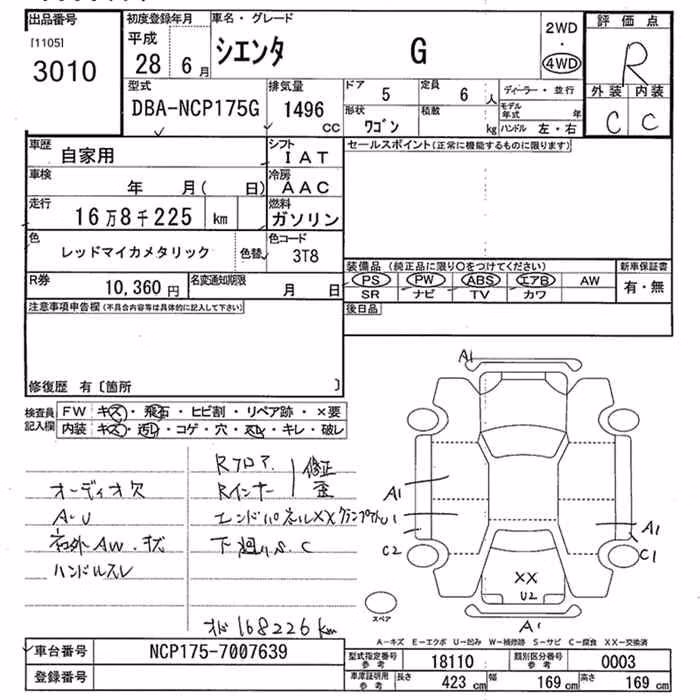 出品番号
[1105]
3010
初度登録年月
平成
28 6月
車名・グレード
シエンタ G
2WD
・
4WD
評価点
R
外装 内装
C C
型式
DBA-NCP175G
排気量
1496
CC
ドア
5
定員
6 人
ディーラー・並行
形状
ワゴン
積載
kg
モデル年式 年
ハンドル 左・右
車歴
自家用
シフト
IAT
セールスポイント(正常に機能するものに限ります)
車検
年 月( 日)
冷房
AAC
走行
16万8千225 km
燃料
ガソリン
色
レッドマイカメタリック
色替
色コード
3T8
R券
10,360円
名変通知期限
月 日
装備品 (純正品に限り○をつけてください)
新車保証書
PS PW ABS エアB AW
SR ナビ TV カワ
有・無
注意事項申告欄(不具合内容等は具体的に記入して下さい)
後日品
修復歴 有〔箇所 〕
検査員記入欄
FW キズ・飛石・ヒビ割・リペア跡・×要
内装 キズ・汚れ・コゲ・穴・スレ・キレ・破レ
オーディオ欠
A-U
社外AW.キズ
ハンドルスレ
Rフロア
Rインナー
修正
歪
エンドパネルXX
下廻りS.C
オド168226km
A1
A1
U1
C2
A1
C1
XX
U2
A1
スペア
A-キズ E-エクボ U-凹み W-補修跡 S-サビ C-腐食 XX-交換済
車台番号
NCP175-7007639
登録番号
型式指定番号
参考
18110
類別区分番号
参考
0003
車庫証明用
参考
長さ
423 cm
幅
169 cm
高さ
169 cm